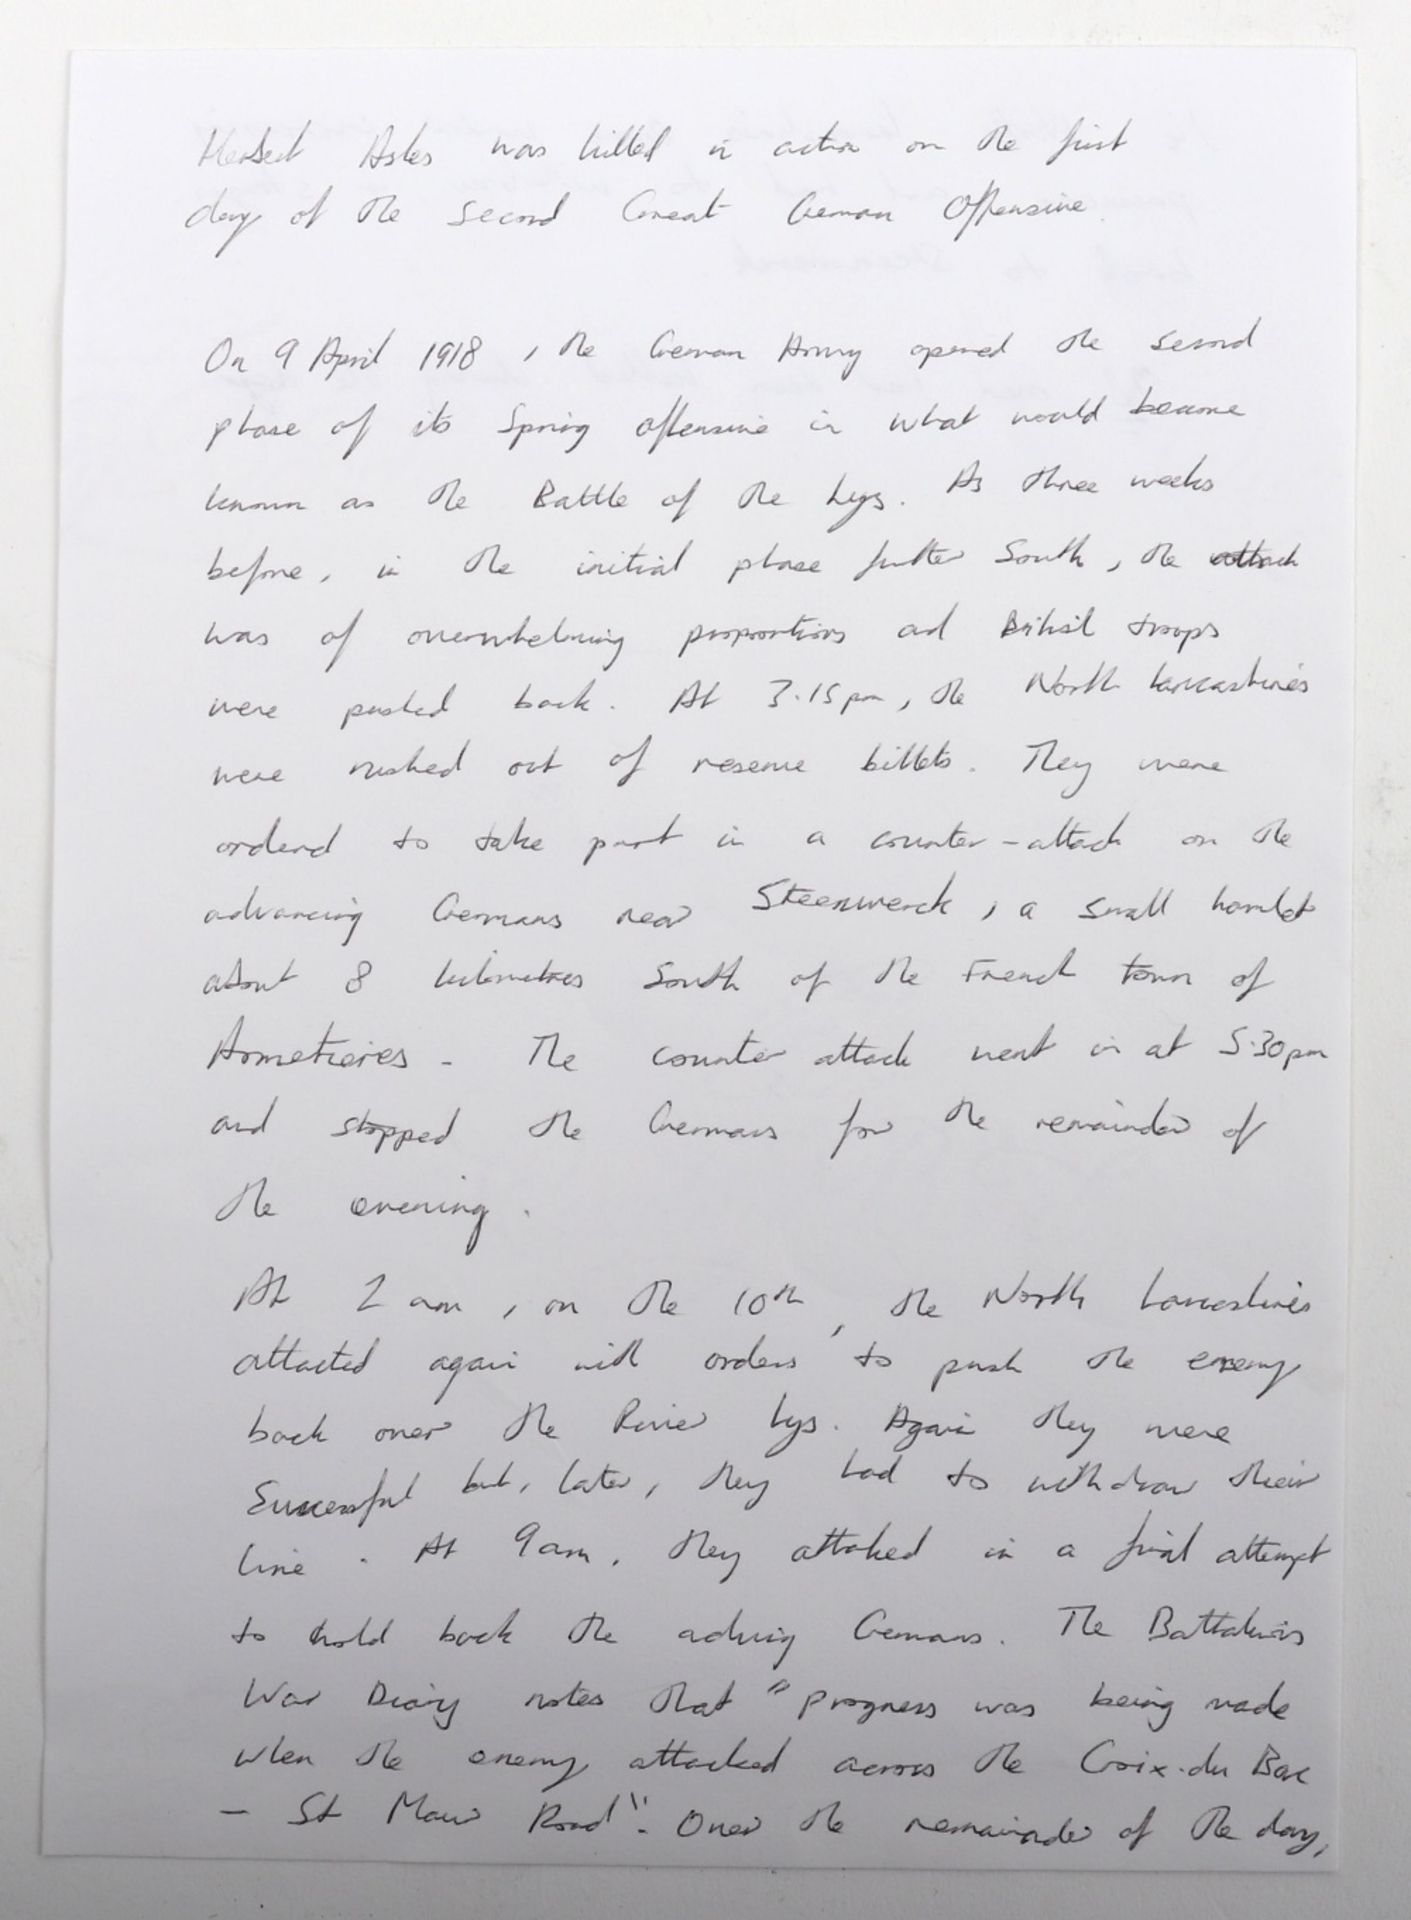 Herbert Astes was killed in action on the first
day of the second Great German Offensive.
On 9 April 1918, the German Army opened the second
phase of its Spring offensive in what would become
known as the Battle of the Lys. As three weeks
before, in the initial phase further South, the attack
was of overwhelming proportions and British troops
were pushed back. At 3.15pm, the North Lancashires
were rushed out of reserve billets. They were
orderd to take part in a counter-attack on the
advancing Germans near Steenwerck, a small hamlet
about 8 kilometres South of the French town of
Armetieres - The counter attack went in at 5.30pm
and stopped the Germans for the remainder of
the evening.
At 2 am, on the 10th, the North Lancashires
attacted again with orders to push the enemy
back over the River Lys. Again they were
Successful but, later, they had to withdraw their
line. At 9am, they attaked in a final attempt
to hold back the adving Germans. The Battalions
War Diary notes that "progress was being made
when the enemy attacked across the Croix.du Bac
- St Maur Road". Over the remainder of the day,